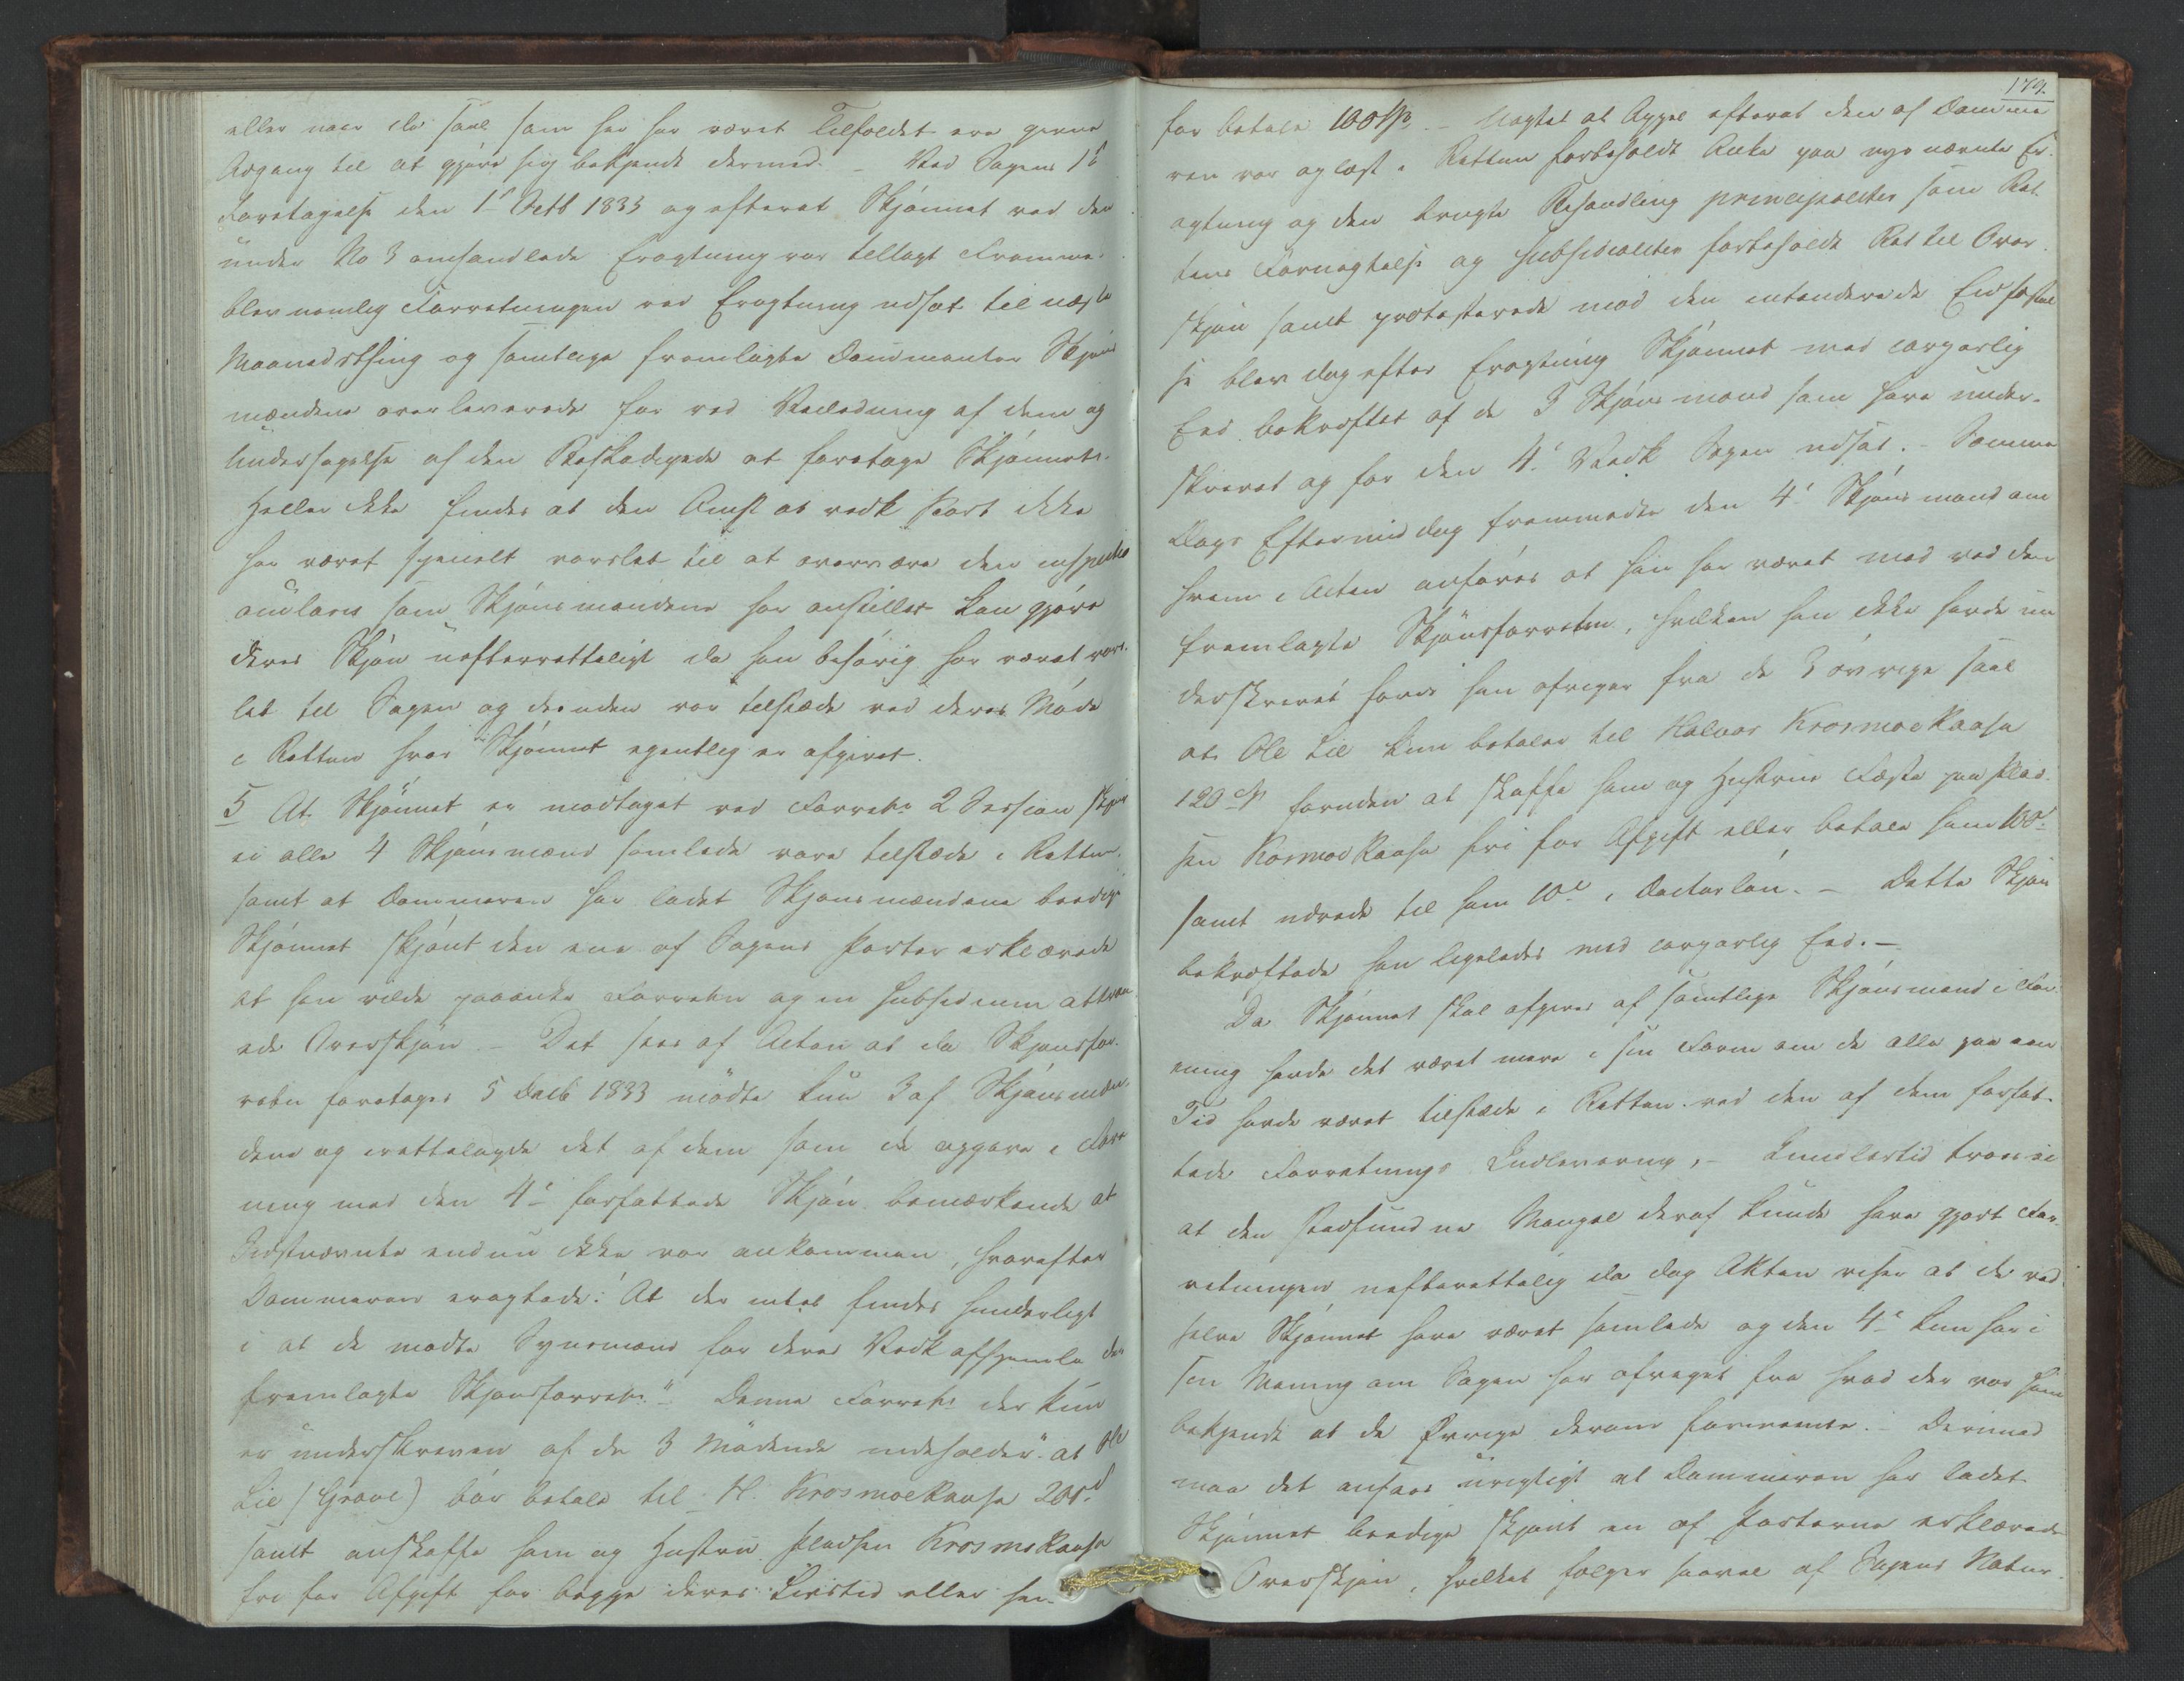 eller naar de saal som her har været Tilfældet ere givne
Adgang til at gjøre sig bekjendt dermed. – Ved Sagens 1ste
Foretagelse den 1ste Octb 1833 og efterat Skjønnet ved den
under No 3 omhandlede Eragtning var tillagt Fremme
blev nemlig Forretningen ved Eragtning udsat til næste
Maanedsthing og samtlige fremlagte Documenter Skjøns
mændene overleverede for ved Veiledning af dem og
Undersøgelse af den Beskadigede at foretage Skjønnet.
Heller ikke findes at den Omst at vedk Part ikke
har været specielt varslet til at overvære den inspectio
ocularis som Skjønsmændene har anstillet kan gjøre
deres Skjøn uefterretteligt da han behørig har været vars-
let til Sagen og desuden var tilstæde ved deres Møde
i Retten hvor Skjønnet egentlig er afgivet.
5 At Skjønnet er modtaget ved Forretn 2 Session skjønt
ei alle 4 Skjønsmænd samlede vare tilstæde i Retten,
samt at Dommeren har ladet Skjønsmændene beedige
Skjønnet skjønt den ene af Sagens Parter erklærede
at han vilde paaanke Forretn og in subsidium attraa-
ede Overskjøn. – Det sees af Acten at da Skjønsfor-
retn foretages 5 Decb 1833 mødte kun 3 af Skjønsmæn-
dene og irettelagde det af dem som de opgave i For
ning med den 4de forfattede Skjøn bemærkende at
Sidstnævnte endnu ikke var ankommen, hvorefter
Dommeren eragtede: "At der intet findes hinderligt
i at de mødte Synsmænd for deres Vedk afhjemle den
fremlagte Skjønsforretn." – Denne Forretn der kun
er underskreven af de 3 Mødende indeholder "at Ole
Lie (Grave) bør betale til H. Krosmoekaasa 200d
samt anskaffe ham og Hustru Pladsen Krosmokaasa
fri for Afgift for begge deres Livstid eller her-
179.
for betale 100 Sp. – Uagtet at Appel efterat den af Domme
ren var oplæst i Retten forbeholdt Anke paa nys nævnte Er-
agtning og den brugte Behandling principaliter som Ret-
tens Fornægtelse og subsidialiter forbeholdt Ret til Over-
skjøn samt protesterede mod den intenderede Edfæstel
se blev dog efter Eragtning Skjønnet med corporlig
Eed bekræftet af de 3 Skjønsmænd som have under-
skrevet og for den 4des Vedk Sagen udsat. – Samme
Dags Eftermiddag fremmødte den 4de Skjønsmand om
hvem i Acten anføres at han har været med ved den
fremlagte Skjønsforretn, hvilken han ikke havde un
derskrevet havde han afveget fra de 3 øvrige saal
at Ole Lie kun betaler til Halvor Krosmoekaasa
120 Sp foruden at skaffe ham og Hustrue Fæste paa Plad-
sen Kosmoekaasa fri for Afgift eller betale ham 100d
samt udrede til ham 10d i Doctorløn. – Dette Skjøn
bekræftede han ligeledes med corporlig Eed. –
Da Skjønnet skal afgives af samtlige Skjønsmænd i For-
ening havde det været mere i sin Form om de alle paa een
Tid havde været tilstæde i Retten ved den af dem forfat-
tede Forretnings Indlevering, – Imidlertid troes ei
at den stedfundne Mangel deraf kunde have gjort For-
retningen uefterrettelig da dog Akten viser at de ved
selve Skjønnet have været samlede og den 4de kun har i
sin Mening om Sagen har afveget fra hvad der var ham
bekjendt at de Øvrige derom formeente. Derimod
maa det ansees urigtigt at Dommeren har ladet
Skjønnet beedige skjønt en af Parterne erklærede
Overskjøn, hvilket følger saavel af Sagens Natur